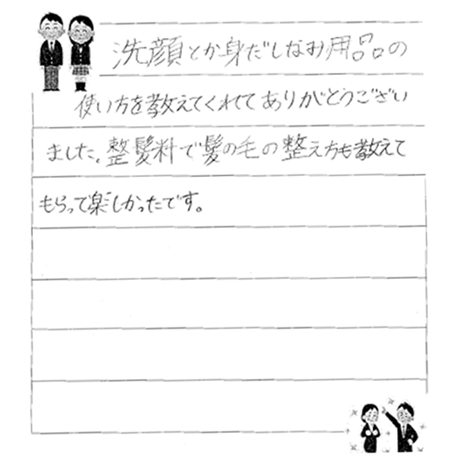 洗顔とか身だしなみ用品の
使い方を教えてくれてありがとうござい
ました。整髪料で髪の毛の整え方も教えて
もらって楽しかったです。